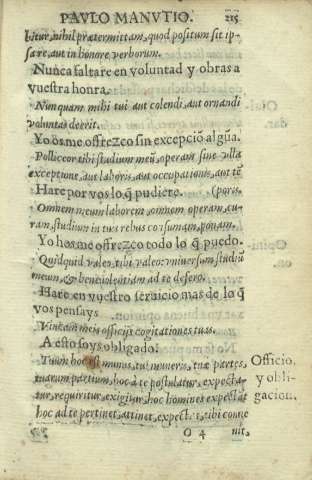 PAVLO MANVTIO. 215
bitur, nihil prætermittam, quod positum sit ip-
sa re, aut in honore verborum.
Nunca faltare en voluntad y obras a
vuestra honra.
Nunquam mihi tui aut colendi, aut ornandi
voluntas deerit.
Yo os me offrezco sin excepció algũa.
Polliceor tibi studium meũ, operam sine vlla
exceptione, aut laboris, aut occupationis, aut tẽ
Hare por vos lo q̃ pudiere. (poris.
Omnem meum laborem, omnem operam, cu-
ram, studium in tuis rebus consumam, ponam.
Yo hos me offrezco todo lo q̃ puedo.
Quidquid valeo, tibi valeo: vniuersum studiũ
meum, & beneuolentiam ad te defero.
Hare en vuestro seruicio mas de lo q̃
vos pensays
Vincam meis officijs cogitationes tuas.
A esto soys obligado.
Tuum hoc est munus, tui muneris, tuæ partes,
tuarum partium, hoc à te postulatur, expecta-
tur, requiritur, exigitur, hoc homines expectãt
hoc ad te pertinet, attinet, expectat, tibi conue
Officio,
y obli-
gacion.
O 4 nit,